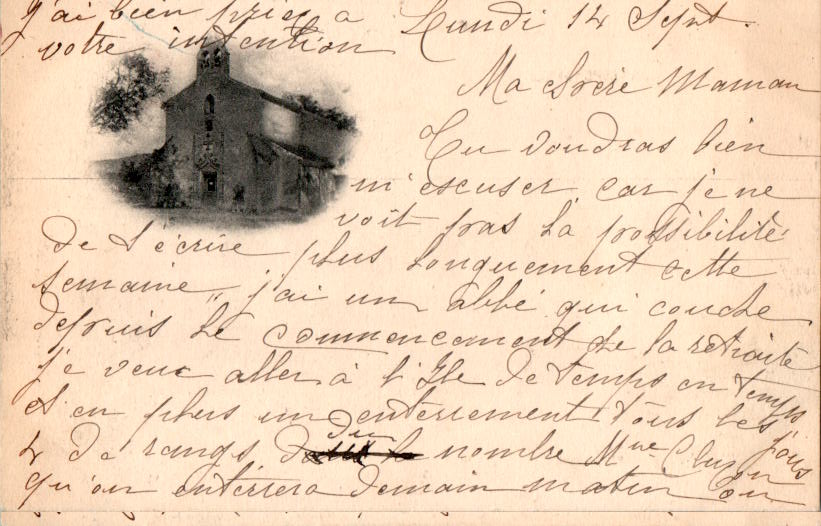 j'ai bien prié à
votre intention
Lundi 14 Sept.
Ma chère Maman
Tu voudras bien
m'escuser car je ne
voit pas la possibilité
de t'écrire plus longuement cette
semaine, j'ai un abbé qui couche
depuis le commencement de la retraite
je veux aller à l'Ile de temps en temps
et en plus un enterrement tous les jours
4 de rangs du nombre Mme
qu'on enterrera demain matin ou